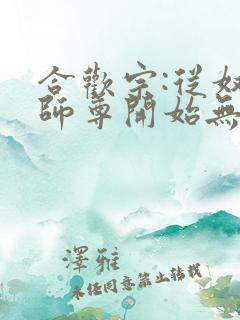 合歡宗:從奴
師尊開始無
澤雅
未任同意禁止轉載